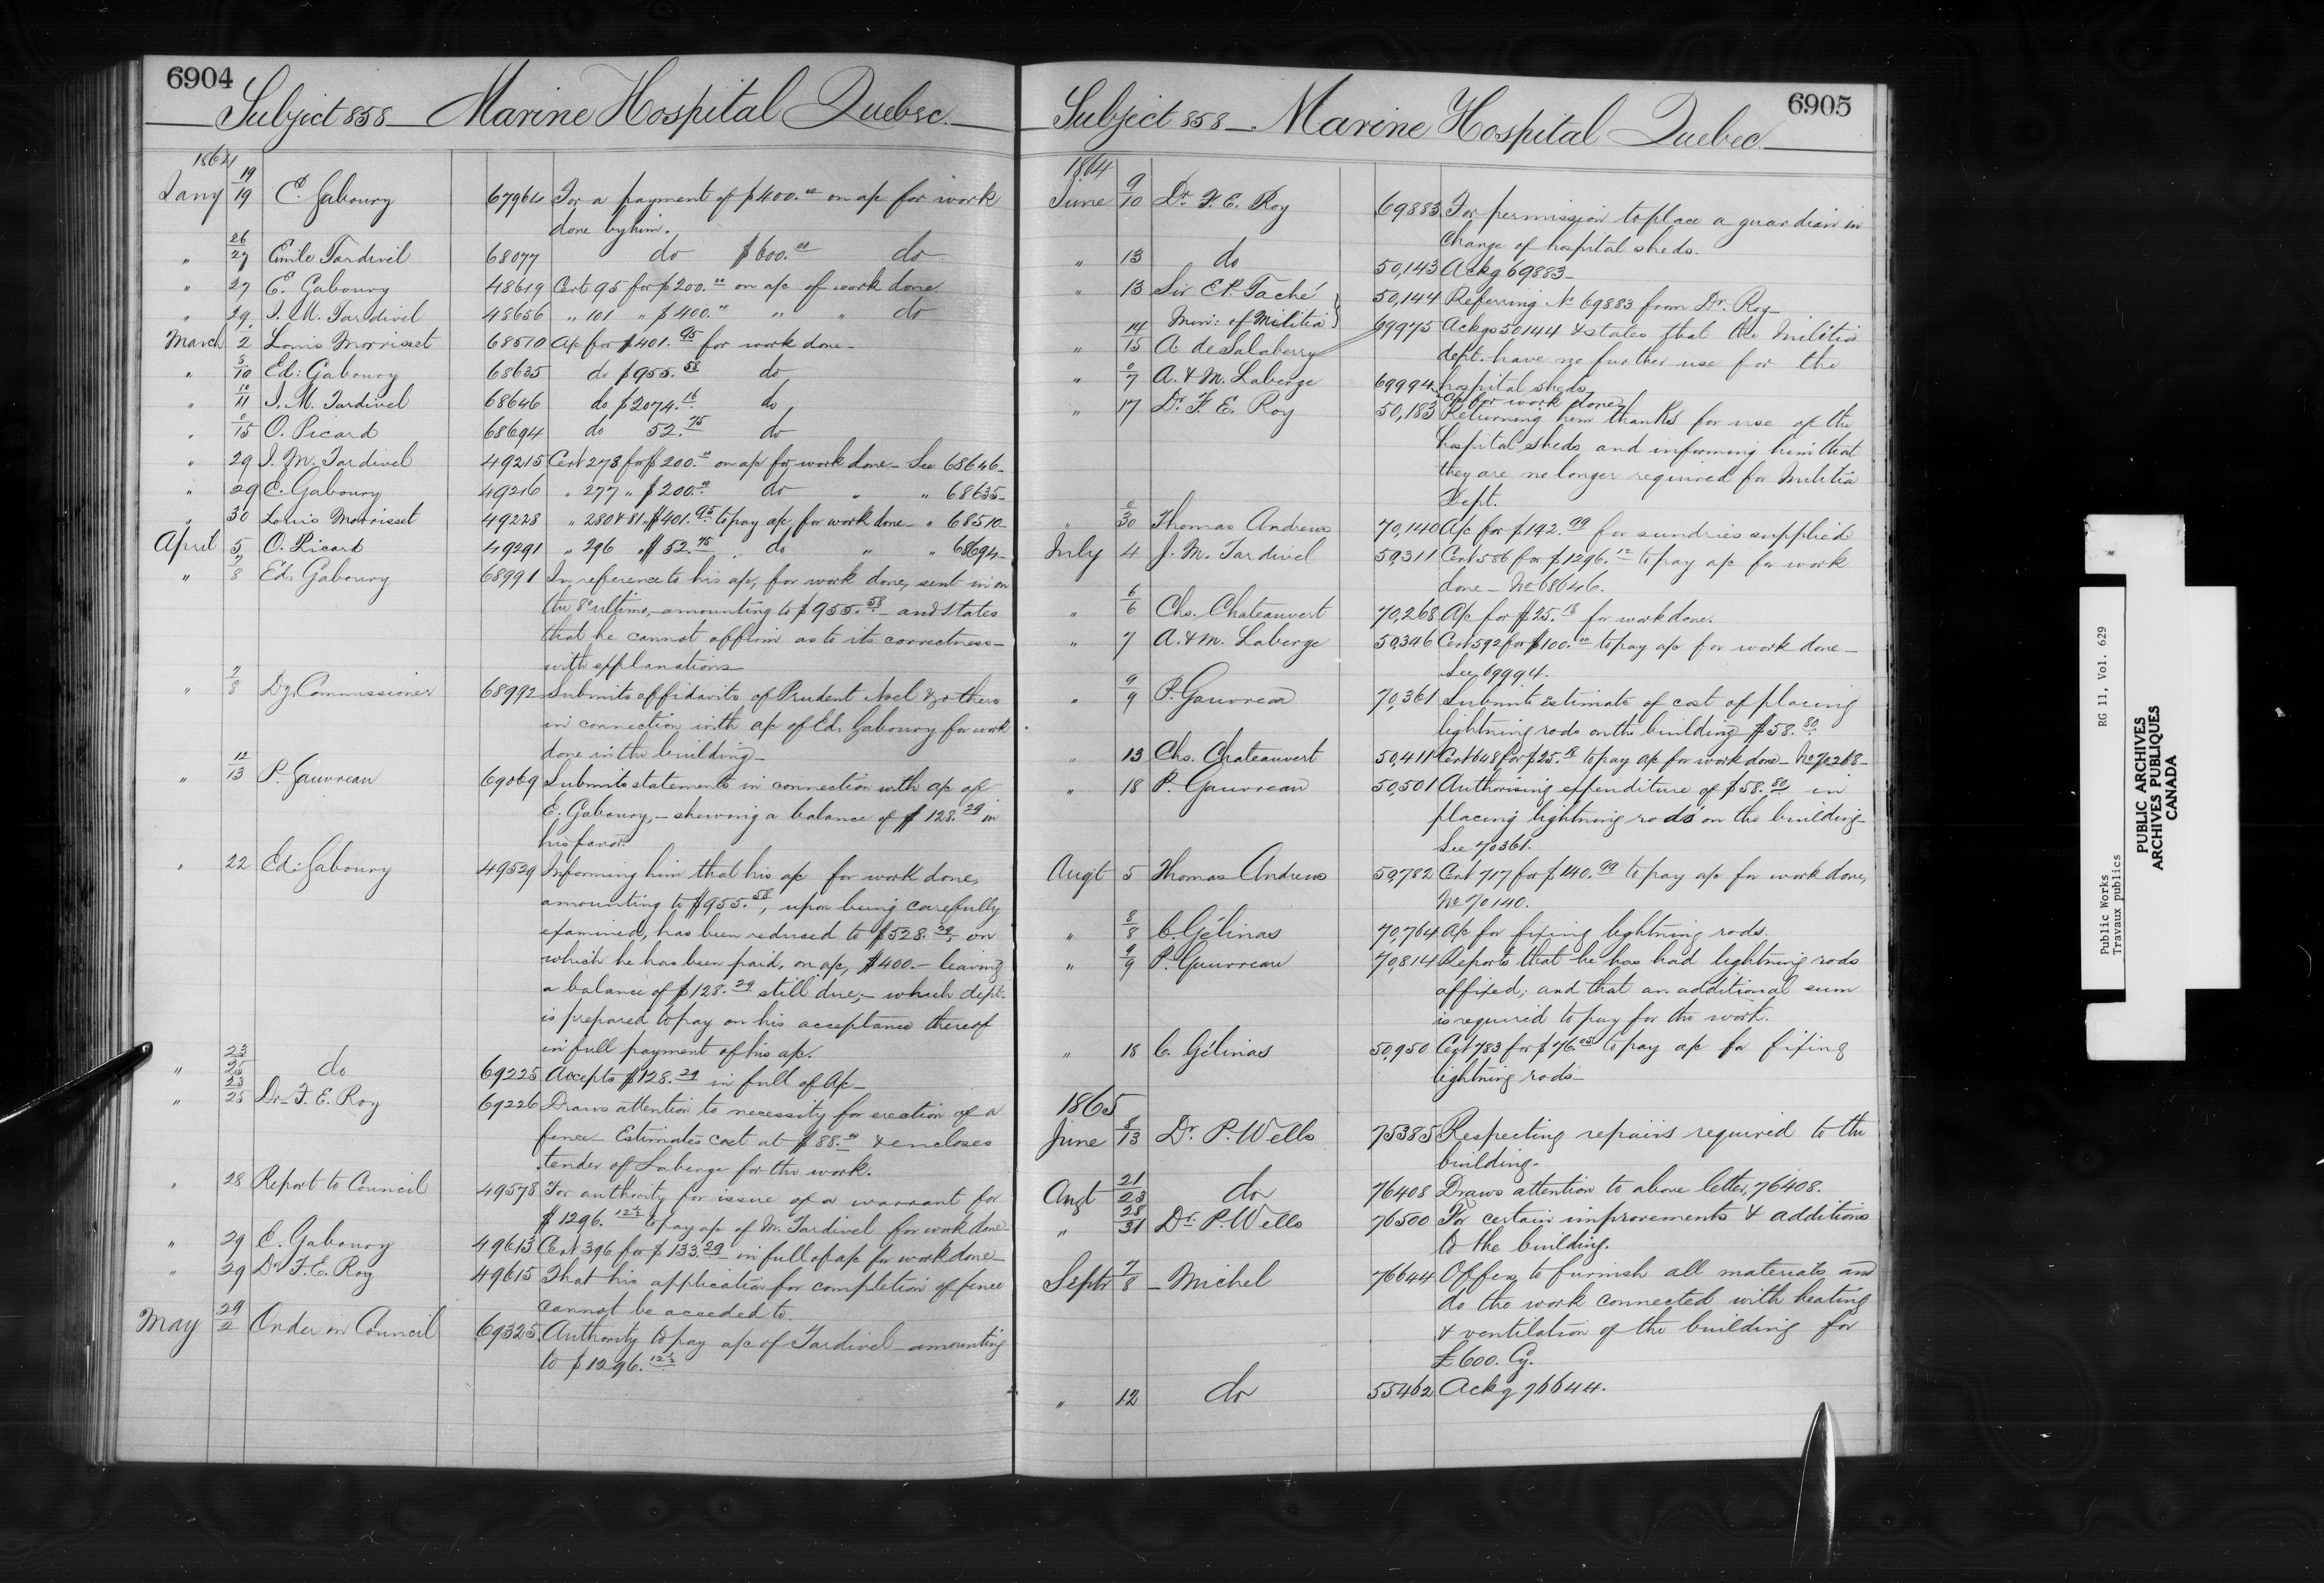 6904
Subject 858 - Marine Hospital Quebec.
1864
Jany 19/19 E. Gaboury 67964 For a payment of $400.00 on a/c for work
done by him.
" 26/27 Emile Tardivel 68077 do $600.00 do
" 27 E. Gaboury 48619 Cert 95 for $200.00 on a/c of work done
" 29. J. M. Tardivel 48656 " 101 " $400." " " do
March 2 Louis Morrisset 68510 a/c for $401.95 for work done -
" 8/10 Ed: Gaboury 68635 do $955.58 do
" 10/11 J. M. Tardivel 68646 do $2074.16 do
" 0/15 O. Picard 68694 do 52.75 do
" 29 J. M. Tardivel 49215 Cert 278 for $200.00 on a/c for work done - See 68646 -
" 29 E. Gaboury 49216 " 277 " $200.00 do " " 68635 -
" 30 Louis Morrisset 49228 " 280 & 81 " $401.95 to pay a/c for work done - " 68510 -
April 5 O. Picard 49291 " 296 " $52.75 " do " " 68694 -
" 7/8 Ed. Gaboury 68991 In reference to his a/c, for work done, sent in on
the 8th ultimo, - amounting to $955.58 - and states
that he cannot affirm as to its correctness -
with explanations
" 7/8 Dy. Commissioner 68992 Submits affidavits of Prudent Noel & others
in connection with a/c of Ed. Gaboury for work
done in the building -
" 12/13 P. Gauvreau 69069 Submits statements in connection with a/c of
E. Gaboury, - shewing a balance of $128.29 in
his favor.
" 22 Ed: Gaboury 49539 Informing him that his a/c for work done,
amounting to $955.58, upon being carefully
examined, has been reduced to $528.29 on
which he has been paid, on a/c, $400. - leaving
a balance of $128.29 still due, - which dept.
is prepared to pay on his acceptance thereof
in full payment of his a/c.
" 23/25 do 69225 Accepts $128.29 in full of a/c -
" 23/25 Dr. F. E. Roy 69226 Draws attention to necessity for erection of a
fence - Estimates cost at $88.00 & encloses
tender of Laberge for the work.
" 28 Report to Council 49578 For authority for issue of a warrant for
$1296.12½ to pay a/c of M. Tardivel for work done -
" 29 E. Gaboury 49613 Cert 396 for $133.29 in full of a/c for work done -
" 29 Dr F. E. Roy 49615 That his application for completion of fence
cannot be acceded to.
May 29/2 Order in Council 69325 Authority to pay a/c of Tardivel - amounting
to $1296.12½
6905
Subject 858 - Marine Hospital Quebec.
1864
June 9/10 Dr. F. E. Roy 69883 For permission to place a guardian in
charge of hospital sheds.
" 13 do 50,143 Ackg 69883 -
" 13 Sir E. P. Taché 50,144 Referring No 69883 from Dr. Roy -
Min: of Militia
" 14/15 A. de Salaberry 69975 Ackgs 50144 & states that the Militia
dept. have no further use for the
hospital sheds
" 0/7 A. & M. Laberge 69994 a/c for work done
" 17 Dr. F. E. Roy 50,183 Returning him thanks for use of the
hospital sheds, and informing him that
they are no longer required for Militia
Dept.
" 0/30 Thomas Andrews 70,140 a/c for $142.99 for sundries supplied
July 4 J. M. Tardivel 50,311 Cert 586 for $1296.12 to pay a/c for work
done - No 68646.
" 6/6 Chs. Chateauvert 70,268 a/c for $25.18 for work done.
" 7 A. & M. Laberge 50,346 Cert 592 for $100.00 to pay a/c for work done -
See 69994.
" 9/9 P. Gauvreau 70,361 Submits Estimate of cost of placing
lightning rods on the building $58.80
" 13 Chs. Chateauvert 50,411 Cert 648 for $25.18 to pay a/c for work done - No 70268 -
" 18 P. Gauvreau 50,501 Authorising expenditure of $58.80 in
placing lightning rods on the building -
See 70361.
Augt 5 Thomas Andrews 50,782 Cert 717 for $140.99 to pay a/c for work done,
No 70140.
" 8/8 C. Gélinas 70,764 a/c for fixing lightning rods.
" 9/9 P. Gauvreau 70,814 Reports that he has had lightning rods
affixed; and that an additional sum
is required to pay for the work.
" 18 C. Gélinas 50,950 Cert 783 for $76.05 to pay a/c for fixing
lightning rods -
1865
June 8/13 Dr. P. Wells 75385 Respecting repairs required to the
building.
Augt 21/23 do 76408 Draws attention to above letter, 76408.
" 28/31 Dr. P. Wells 76500 For certain improvements & additions
to the building.
Septr 7/8 - Michel 76644 Offers to furnish all materials and
do the work connected with heating
& ventilation of the building for
£600. Cy.
" 12 do 55462 Ackg 76644.
Public Works RG 11, Vol. 629
Travaux publics
PUBLIC ARCHIVES
ARCHIVES PUBLIQUES
CANADA